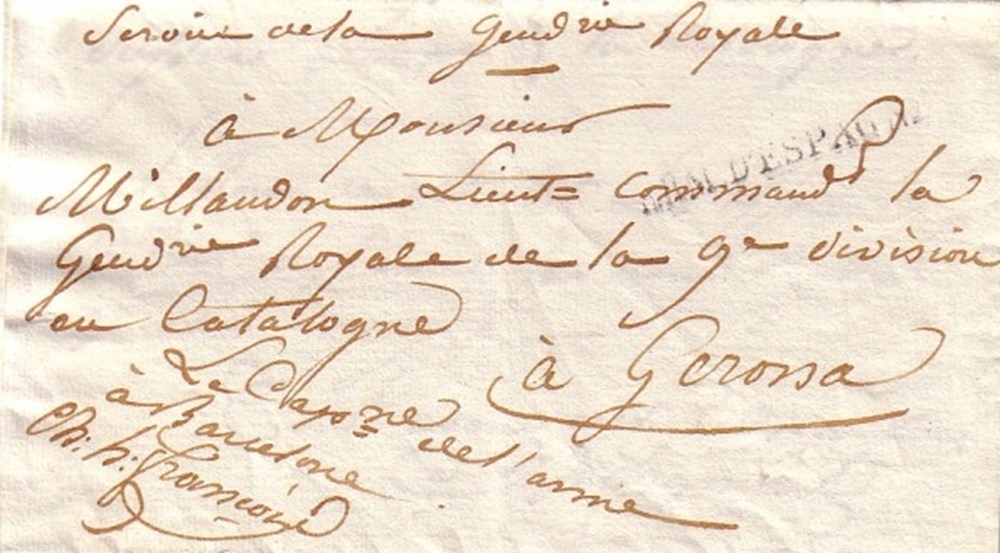 Service de la Gend^rie Royale
à Monsieur
Millaudon Lieut= command^t la
Gend^rie Royale de la 9^e division
en Catalogne
à Gerona
D'ESPAGNE
Le Cap^ne de l'arme
à Barcelone